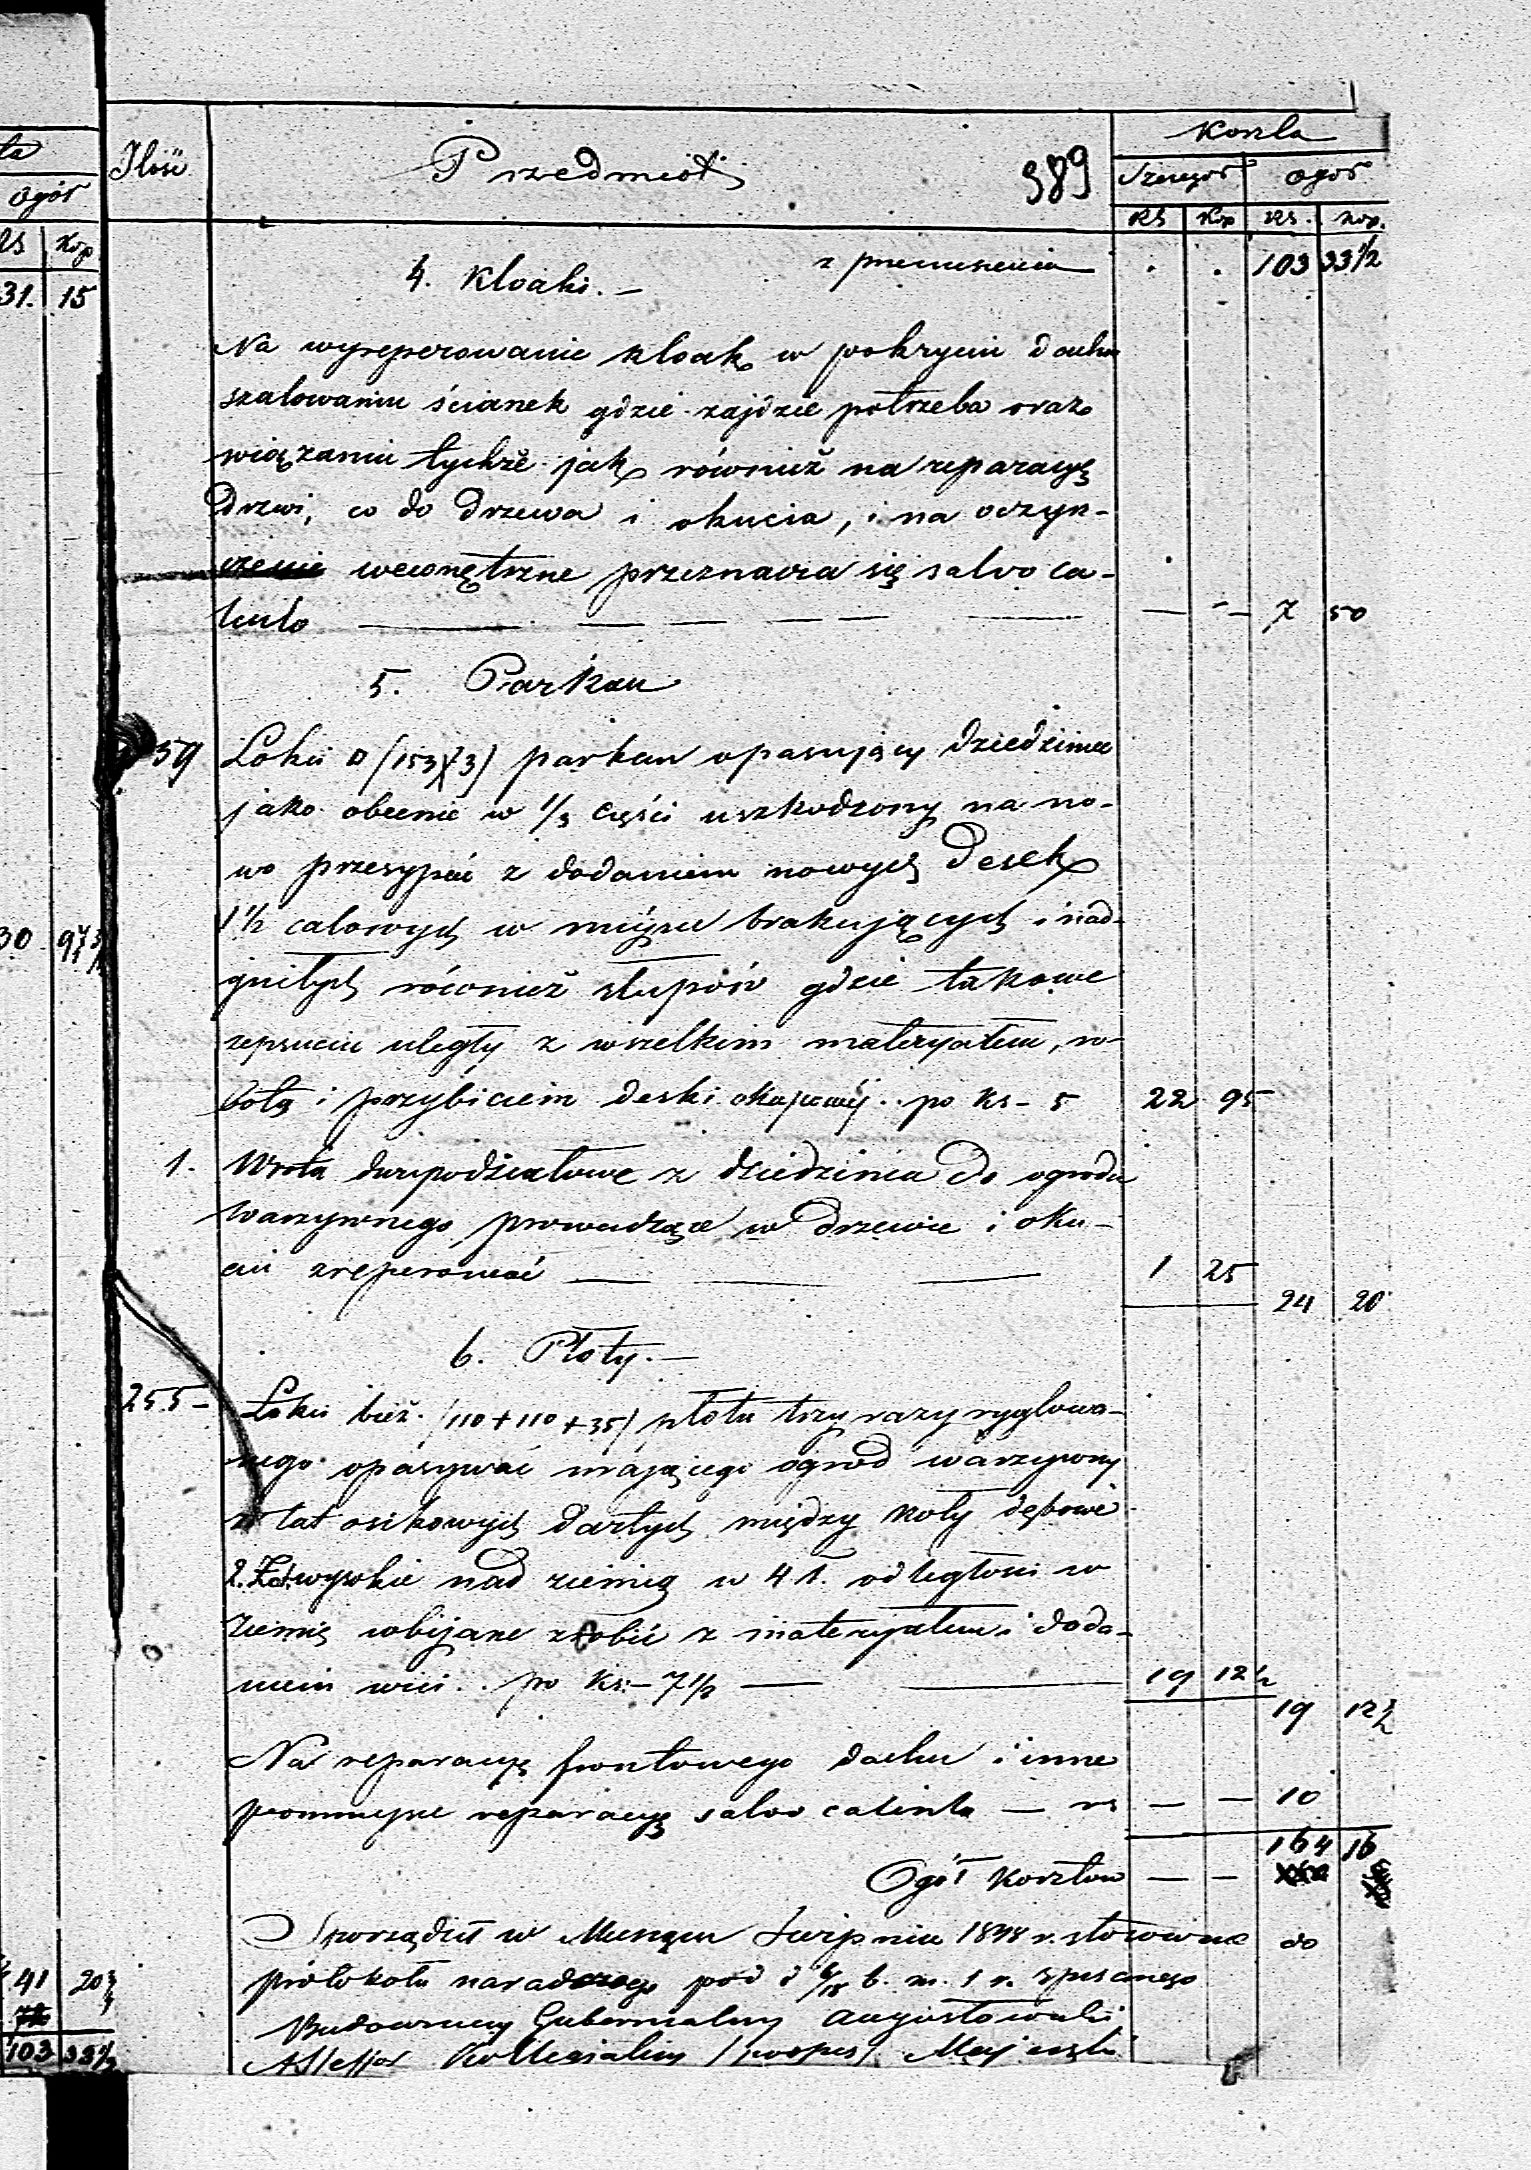 Ilość
Przedmiot
389
Koszta
Szczegół ogół
RS Kop RS. Kop.
z przeniesienia . . 103 33 1/2
4. Kloaki. —
Na wyreperowanie kloak w pokryciu dachu
szalowaniu ścianek gdzie zajdzie potrzeba oraz
wiązaniu tychże jak również na reparacyę
drzwi, co do drzewa i okucia, i na oczysz-
czenie wewnętrzne przeznacza się salvo ca-
lculo — — — — — — — 7 50
5. Parkan
459 Łokci □ (153X3) parkan opasujący dziedziniec
jako obecnie w 1/3 części uszkodzony na no-
wo przesypać z dodaniem nowych desek
1 1/2 calowych w miejsce brakujących i nad-
gniłych również słupów gdzie takowe
zepsuciu uległy z wszelkim materyałem, ro-
botą i przybiciem deski okapowéj .. po ks - 5 22 95
1. Wrota dwupodziałowe z dziedzińca do ogrodu
warzywnego prowadzące w drzewie i oku-
ciu zreperować — — — 1 25
24 20
6. Płoty. —
255 - Łokci bież. (110 + 110 + 35) płotu trzy razy ryglowa-
nego opasywać mającego ogród warzywny
z łat osikowych dartych między koły dębowe
2. Ł. wysokie nad ziemią w 4 Ł. odległości w
ziemię wbijane zrobić z materyałem i doda-
niem wici .. po ks: - 7 1/2 — — 19 12 1/2
19 12 1/2
Na reparacyę frontowego dachu i inne
pomniejsze reparacye salvo calculo — rs — — 10
164 16
Ogół kosztów — —
Sporządził w miesiącu Sierpniu 1848 r. stosownie do
protokołu naradczego pod d 6/18 b. m. i r. spisanego
Budowniczy Gubernialny Augustowski
Assessor Kollegialny /podpis/ Majewski
ta
ogół
RS Kop
31. 15
30 97
41 20
103 33 1/2